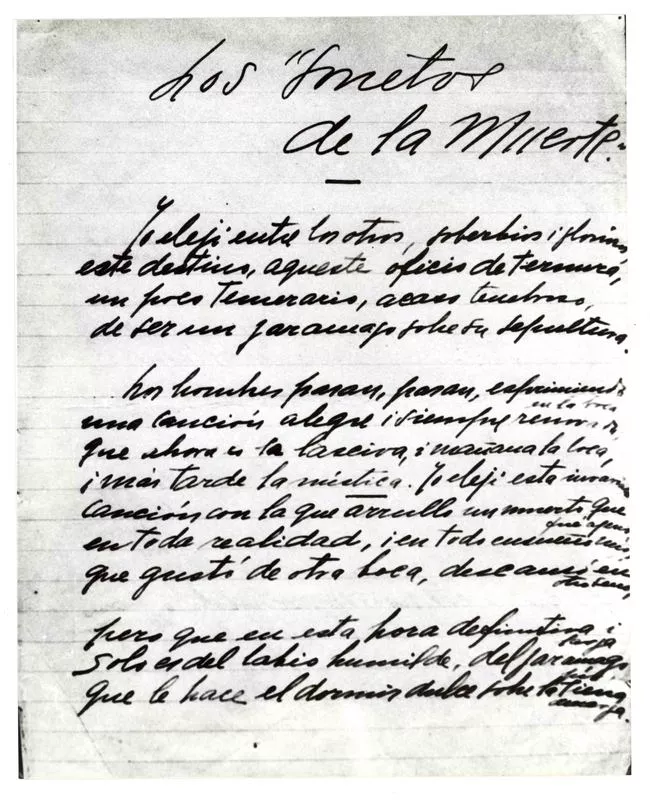 Los "Sonetos
de la Muerte."
Yo elejí entre los otros, soberbios i gloriosos,
este destino, aqueste oficio de ternura,
un poco temerario, acaso tenebroso,
de ser un jaramago sobre su sepultura.
Los hombres pasan, pasan, esprimiendo
en la boca
una canción alegre i siempre renovada,
que ahora es la lasciva, i mañana la loca,
i más tarde la mística. Yo elejí esta invariada
canción con la que arrullo un muerto que
fué ajeno
en toda realidad, i en todo ensueño mío,
que gustó de otra boca, descansó en
otro seno,
pero que en esta hora definitiva i
larga
solo es del labio humilde, del jaramago
pío
que le hace el dormir dulce sobre la tierra
amarga.